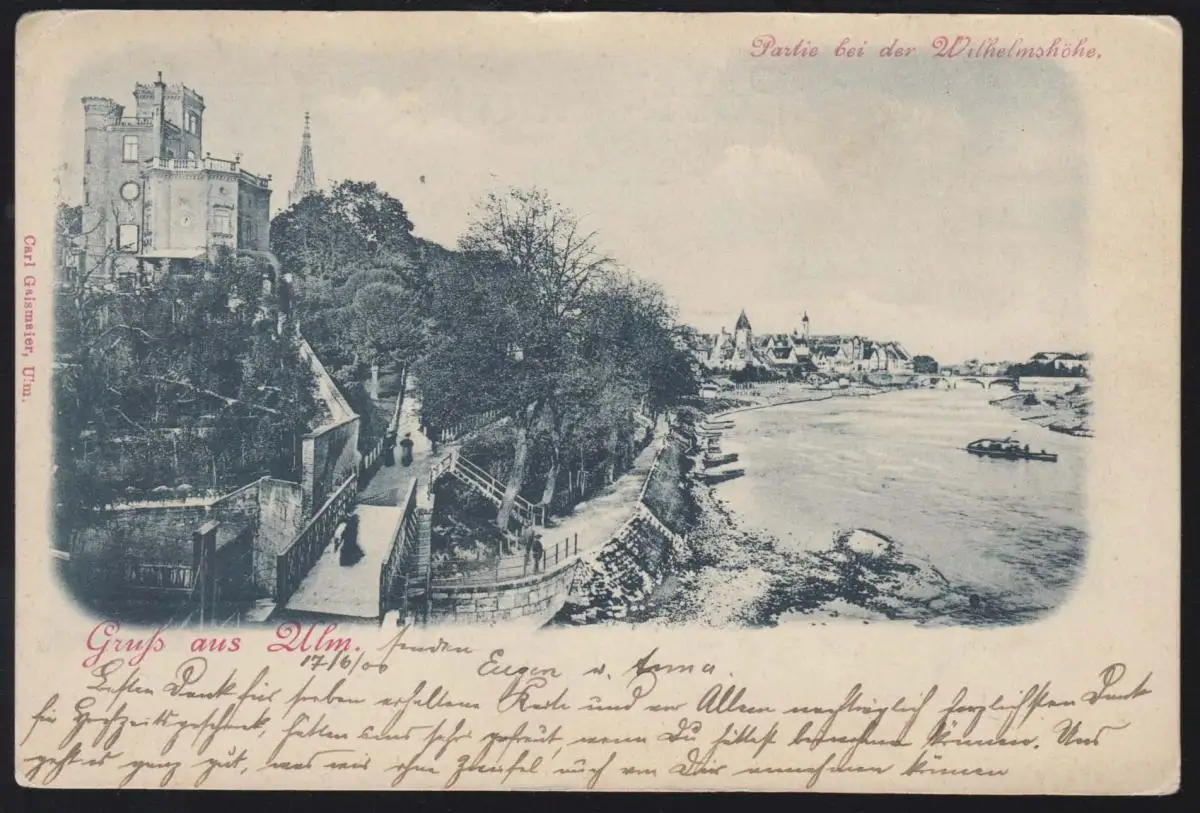 Partie bei der Wilhelmshöhe.
Carl Gaismaier, Ulm.
Gruß aus Ulm.
17/6/00 senden Eugen u. Anna.
Besten Dank für soeben erhaltene Karte und vor Allem nachträglich herzlichsten Dank
für Hochzeitsgeschenk, hätten uns sehr gefreut, wenn Du hättest beiwohnen können. Uns
geht es ganz gut, was wir ohne Zweifel auch von Dir annehmen können